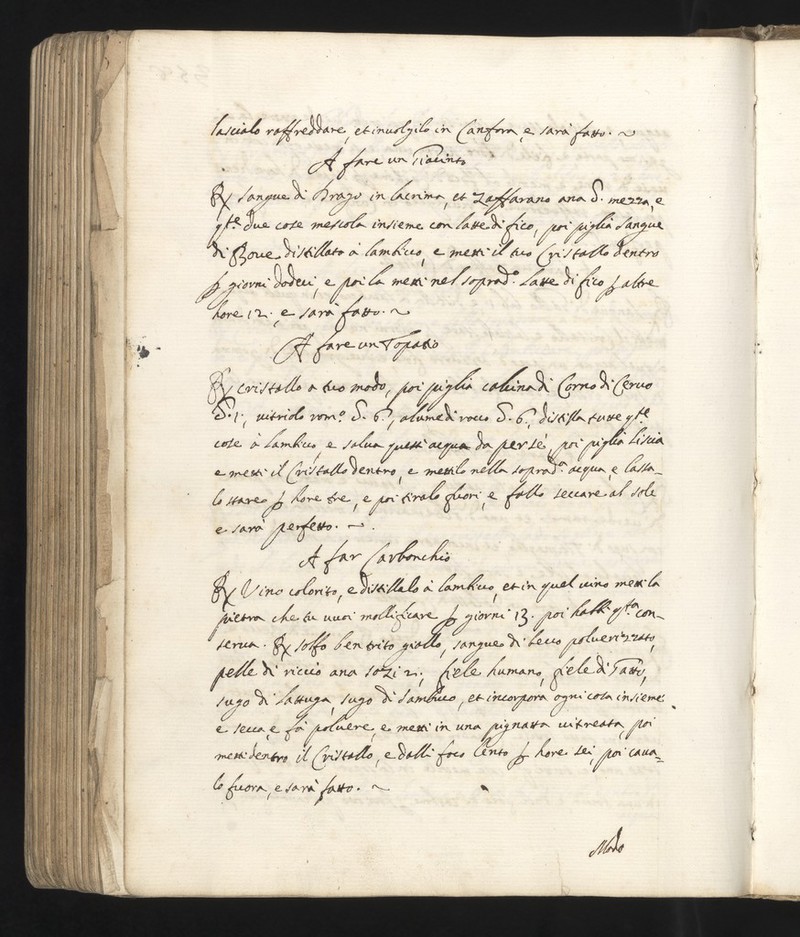 lascialo raffreddare, et involgilo in Canfora, e sarà fatto. ~
A fare un Giacinto
℞ sangue di Drago in lacrima, et Zaffarano ana ℥. mezza, e
q.te due cose mescola insieme con latte di fico, poi piglia sangue
di Bove distillato à lambico, e metti il tuo Cristallo dentro
p giorni dodeci, e poi la metti nel soprad.o latte di fico p altre
hore 12. e sarà fatto. ~
A fare un Topatio
℞ cristallo a tuo modo, poi piglia calcina di Corno di Cervo
℥. 1., vitriolo rom.o ℥. 6., alume di rocco ℥. 6., distilla tutte q.te
cose à lambico, e salva questi acqua da per sé, poi piglia Liscia
e metti il Cristallo dentro, e mettilo nella soprad.a acqua, e lassa-
lo stare p hore tre, e poi tiralo fuori, e fallo seccare al sole
e sarà perfetto. ~
A far Carbonchio
℞ Vino colorito, e distillalo à lambico, et in quel vino metti la
pietra che tu vuoi mollificare p giorni 13. poi q.ta con-
serva. ℞ solfo ben trito giallo, sangue di becco polverizzato,
pelle di riccio ana 2., fiele humano, fiele di Tasso,
sugo di lattuga, sugo di sambuco, et incorpora ogni cosa insieme
e secca, e fà polvere, e metti in una pignatta vitreata, poi
metti dentro il Cristallo, e dalli foco lento p hore sei, poi cava=
lo fuora, e sarà fatto. ~
Modo